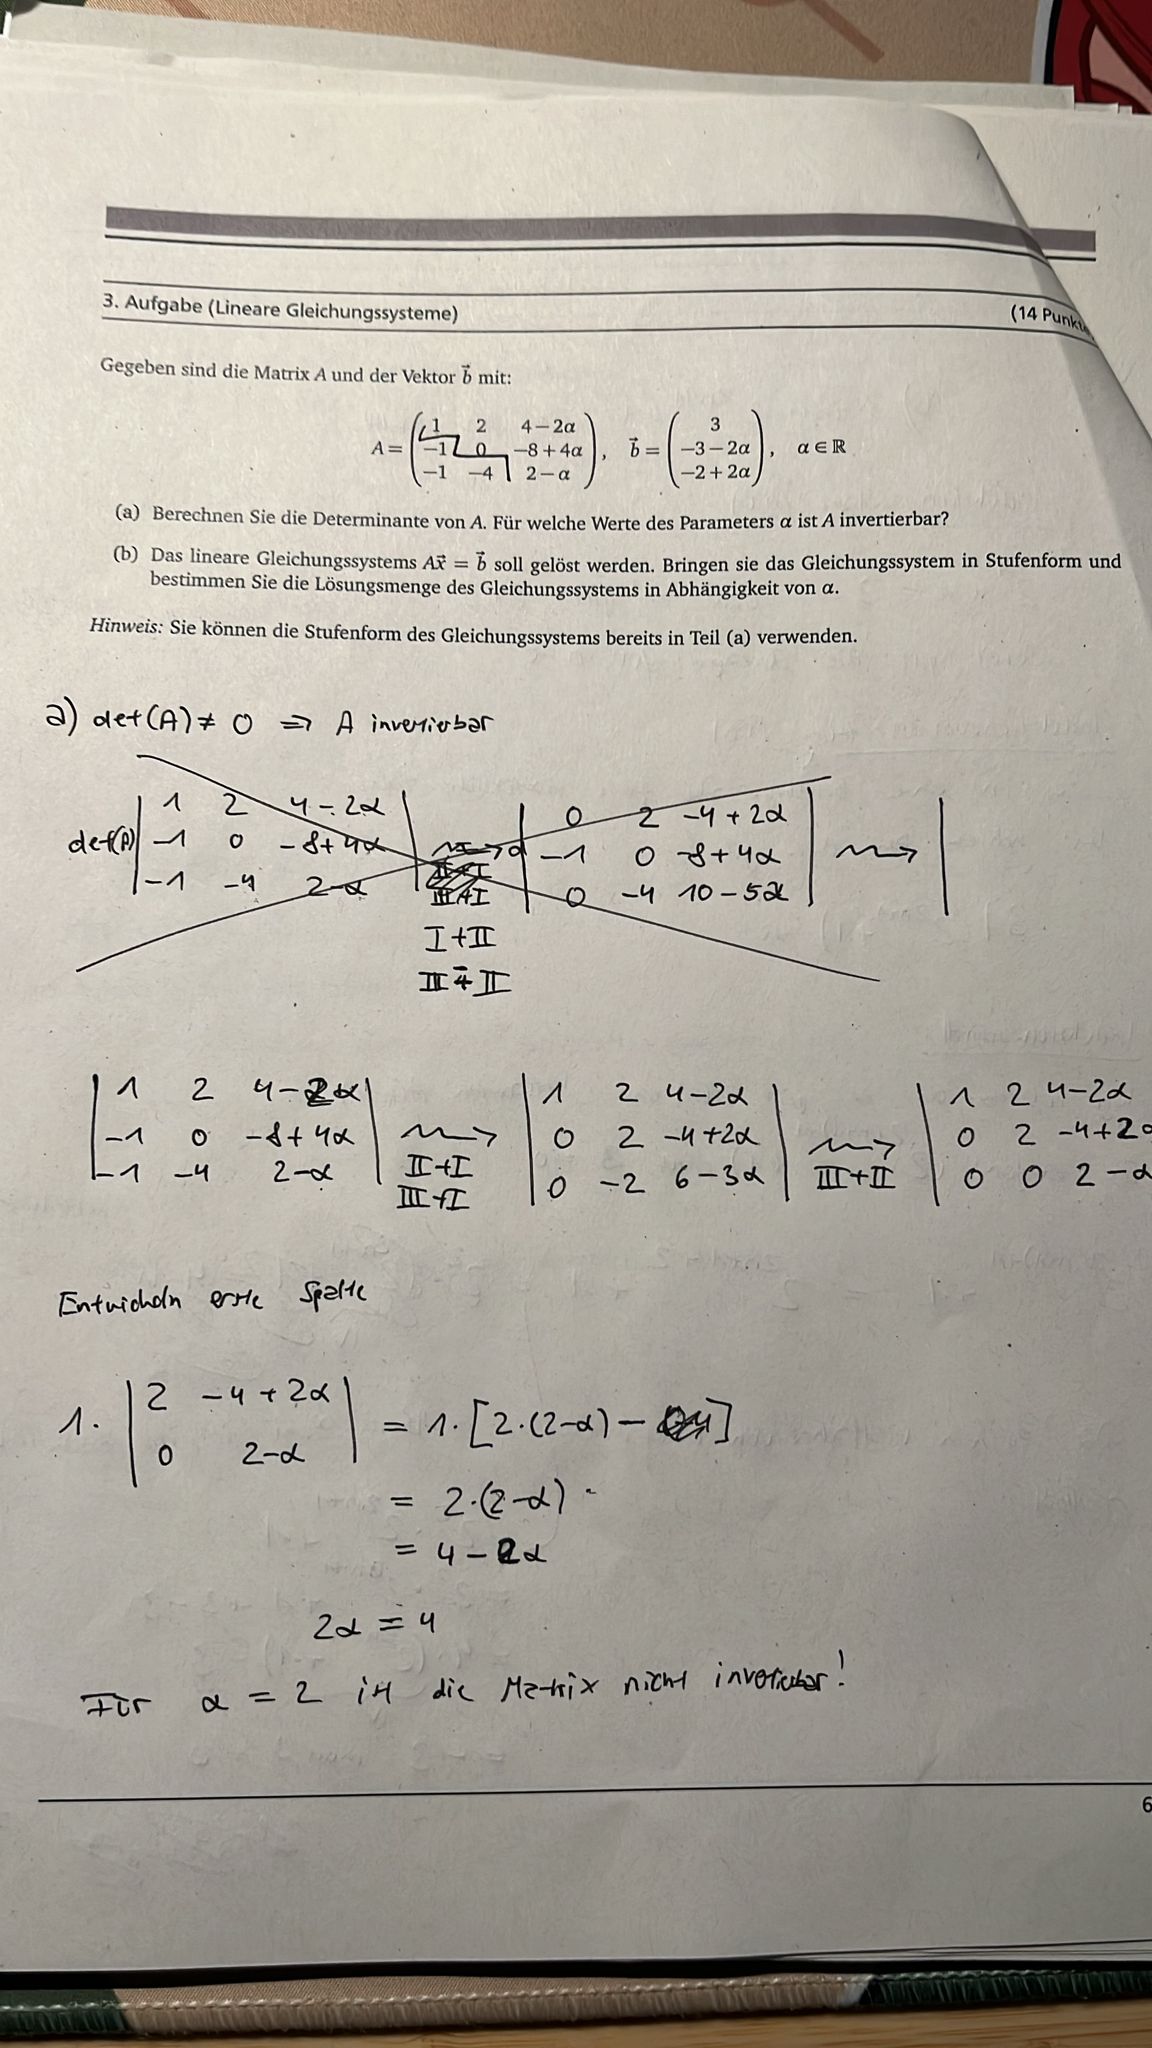 3. Aufgabe (Lineare Gleichungssysteme) (14 Punkte
Gegeben sind die Matrix A und der Vektor b⃗ mit:
A = ( 1 2 4−2α
−1 0 −8+4α
−1 −4 2−α ), b⃗ = ( 3
−3−2α
−2+2α ), α∈ℝ
(a) Berechnen Sie die Determinante von A. Für welche Werte des Parameters α ist A invertierbar?
(b) Das lineare Gleichungssystems Ax⃗ = b⃗ soll gelöst werden. Bringen sie das Gleichungssystem in Stufenform und
bestimmen Sie die Lösungsmenge des Gleichungssystems in Abhängigkeit von α.
Hinweis: Sie können die Stufenform des Gleichungssystems bereits in Teil (a) verwenden.
a) det(A) ≠ 0 ⇒ A invertierbar
det(A) | 1 2 4−2α | | 0 2 −4+2α | |
| −1 0 −8+4α | ⇝ | −1 0 −8+4α | ⇝ |
| −1 −4 2−α | | 0 −4 10−5α | |
I+II
III−II
| 1 2 4−2α | | 1 2 4−2α | | 1 2 4−2α
| −1 0 −8+4α | ⇝ | 0 2 −4+2α | ⇝ | 0 2 −4+2α
| −1 −4 2−α | II+I | 0 −2 6−3α | III+II | 0 0 2−α
III+I
Entwickeln erste Spalte
1· | 2 −4+2α | = 1·[2·(2−α)− ]
| 0 2−α |
= 2·(2−α)
= 4−2α
2α = 4
Für α = 2 ist die Matrix nicht invertierbar!
6